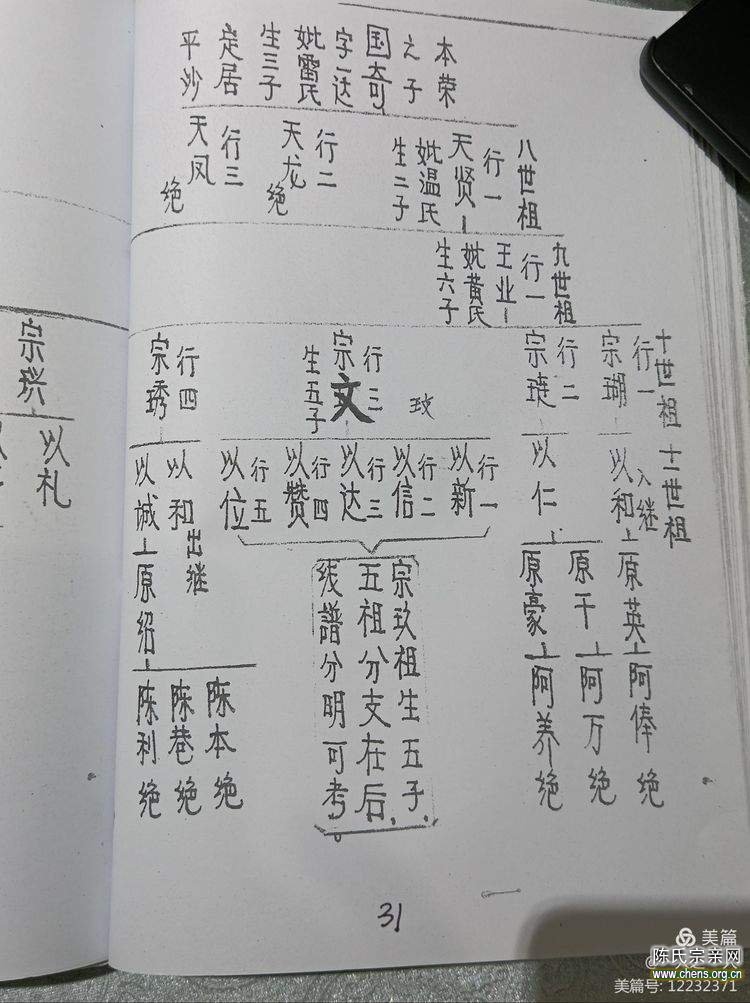 本荣
之子
国奇
字一达
妣雷氏
生三子
定居
平沙
八世祖
行一
天贤
妣温氏
生二子
行二
天龙
绝
行三
天凤
绝
九世祖
行一
王业
妣黄氏
生六子
十世祖
行一
宗瑚
行二
宗琏
玟
行三
宗文
生五子
行四
宗琇
十二世祖
入继
以和
以仁
行一
以新
行二
以信
行三
以达
行四
以赞
行五
以位
以和出继
以诚
原英
原千
原豪
原绍
阿俸绝
阿万绝
阿养绝
宗玖祖生五子.
五祖分支在后.
线譜分明可考。
陈本绝
陈巷绝
陈利绝
宗珙
以礼
31
美篇
陈氏宗亲网
www.chens.org.cn
美篇号: 12232371